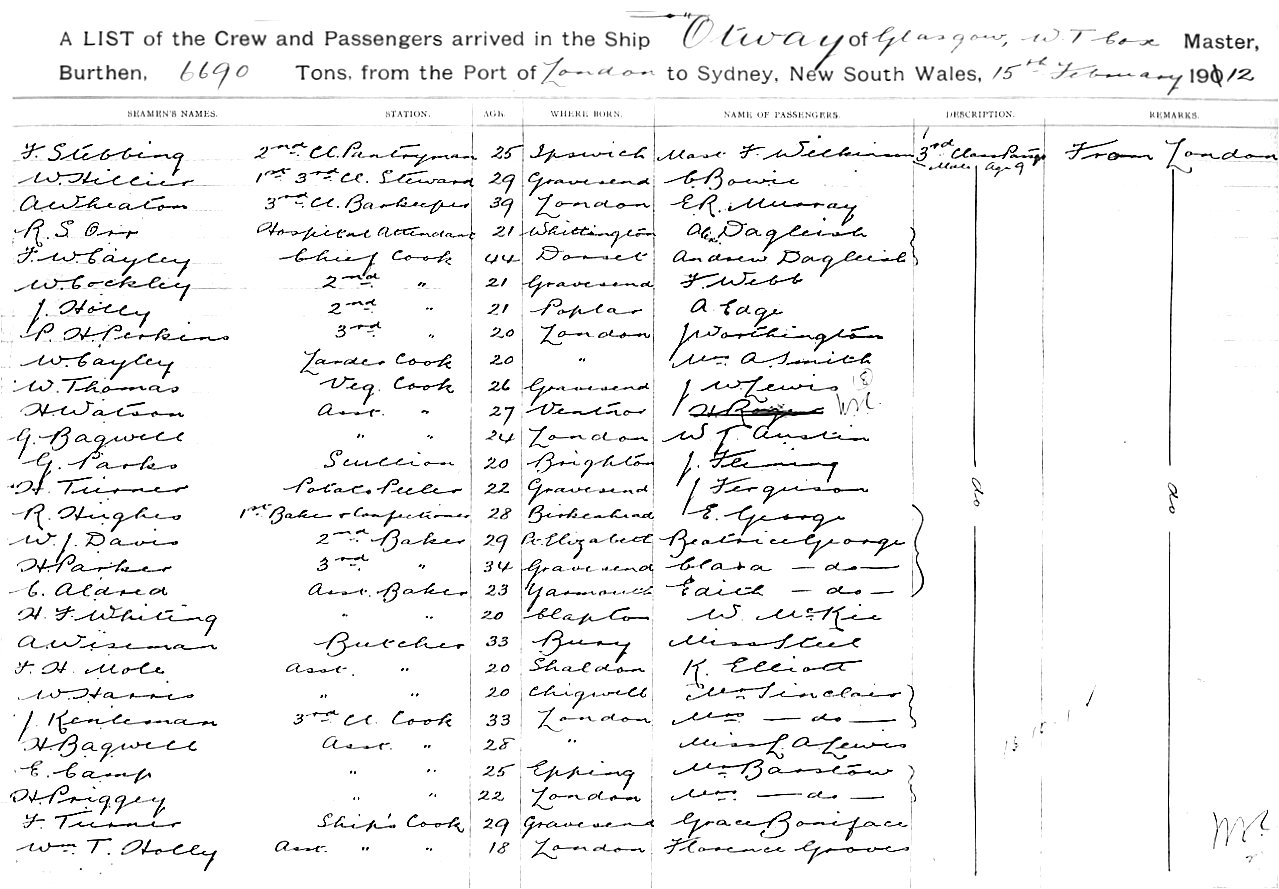 A LIST of the Crew and Passengers arrived in the Ship "Otway of Glasgow, W T Cox Master,
Burthen, 6690 Tons, from the Port of London to Sydney, New South Wales, 15th February 1912
SEAMEN'S NAMES. STATION. AGE. WHERE BORN. NAME OF PASSENGERS. DESCRIPTION. REMARKS.
F. Stebbing 2nd Cl. Pantryman 25 Ipswich Mast F Wilkinson 3rd Class Passgr From London
W. Hillier 1st 3rd Cl. Steward 29 Gravesend C Bowie Male Age 9
A Wheaton 3rd Cl. Barkeeper 39 London E R. Murray
R. S. Orr Hospital Attendant 21 Whittington Alex Dagleish
F. W Cayley Chief Cook 44 Dorset Andrew Dagleish
W. Cockley 2nd " 21 Gravesend F Webb
J. Holly 2nd " 21 Poplar A Edge
P. H Perkins 3rd " 20 London J Worthington
W. Cayley Larder Cook 20 " Mrs A Smith
W. Thomas Veg. Cook 26 Gravesend J W Lewis
H Watson Asst. " 27 Ventnor H Roger
G. Bagwell " " 24 London W J Austin
G. Parks Scullion 20 Brighton J. Fleming
H. Turner Potato Peeler 22 Gravesend J Ferguson
R. Hughes 1st Baker & Confectioner 28 Birkenhead E. George
W. J. Davis 2nd Baker 29 Pt Elizabeth Beatrice George
H. Parker 3rd " 34 Gravesend Clara - do -
C. Aldred Asst. Baker 23 Yarmouth Edith - do - do do
H. F Whiting " " 20 Clapton W. McKie
A Wiseman Butcher 33 Bury Miss Steel
F. H. Mole Asst. " 20 Shaldon K. Elliott
W. Harris " " 20 Chigwell Mr Sinclair
J. Kenteman 3rd Cl. Cook 33 London Mrs - do -
H Bagwell Asst. " 28 " Miss L A Lewis
E. Camp " " 25 Epping Mr Barstow
H. Priggey " " 22 London Mrs - do -
F. Turner Ship's Cook 29 Gravesend Grace Boniface
Wm T. Holly Asst. " " 18 London Florence Groves